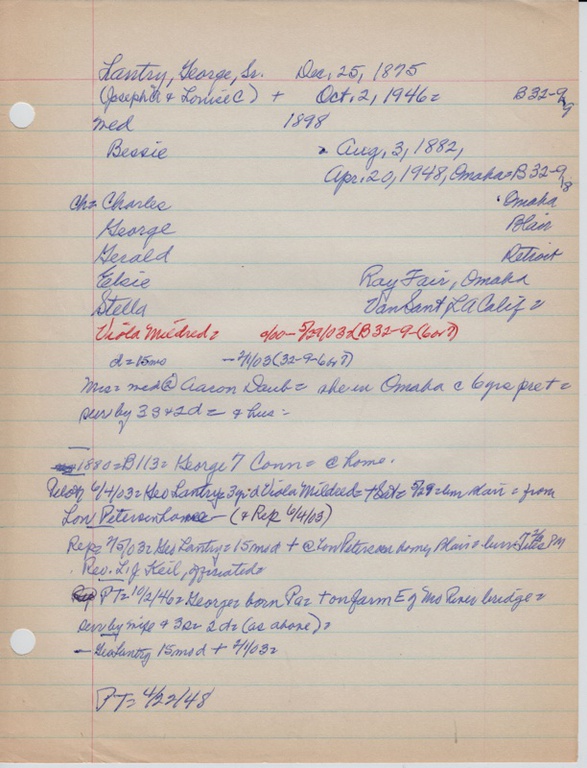 Lantry, George, Sr. Dec. 25, 1875
(Joseph A & Louise C) + Oct. 2, 1946= B32-9-9
med 1898
Bessie - Aug. 3, 1882,
Apr. 20, 1948, Omaha=B32-9-18
ch= Charles Omaha
George Blair
Gerald Detroit
Elsie Ray Fair, Omaha
Stella Van Sant, LA Calif=
Viola Mildred= c/00- 5/29/03=(B32-9-(6 or 7)
d=15ms -7/1/03(32-9-6 or 7)
Mrs= med @ Aaron Daub= she in Omaha c 6yrs prev=
surv by 3s+2d= + hus=
1880=B113= George 7 Conn= @ home.
Pilot 6/4/03=Geo Lantry=3y=d Viola Mildred=+Sat= 5/29= Blair= from
Lon Peterson home- (& Rep 6/4/03)
Rep= 7/5/03= Geo Lantry=15mo d + @ Lon Peterson home, Blair=
Rev. L.J. Keil, officiated=
PT= 10/2/46= George= born Pa= + on farm E of Mo River bridge=
surv by wife + 3s= 2d= (as above)=
- Geo Lantry 15mo d + 7/1/03=
PT= 4/22/48